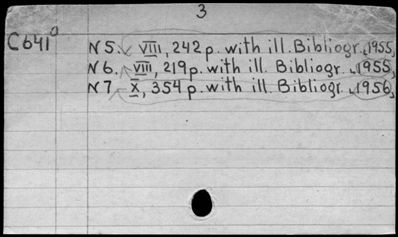 3
C641⁰ N 5. VIII, 242 p. with ill. Bibliogr., 1955,
N 6. VIII, 219 p. with ill. Bibliogr., 1955,
N 7 X, 354 p. with ill. Bibliogr., 1956,